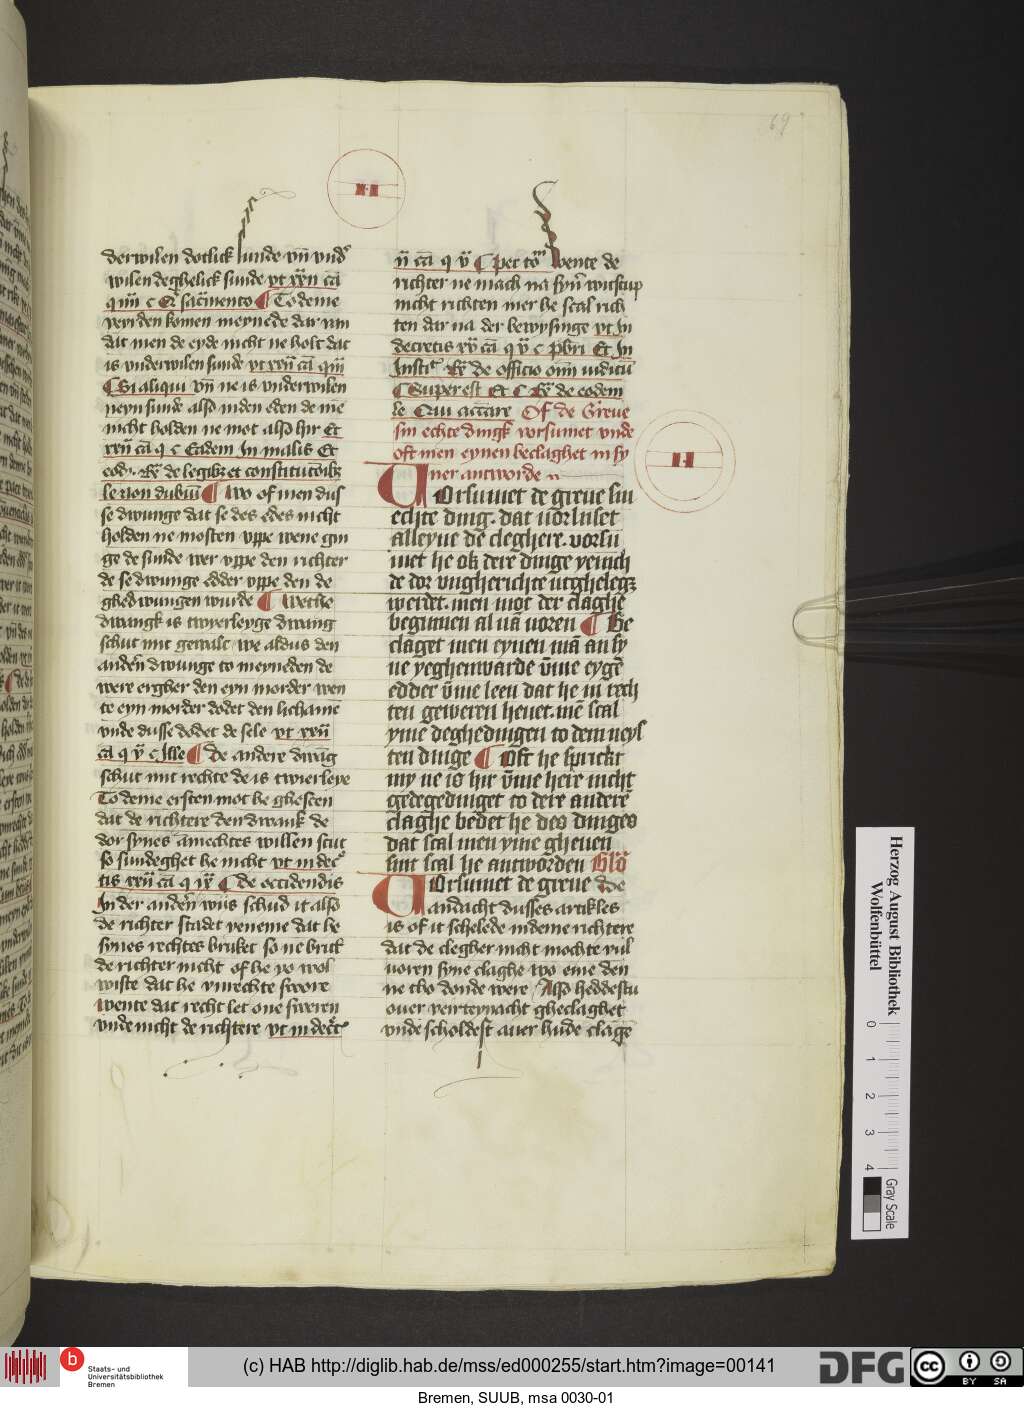 69
II
derwilen dotlick sunde vn̄ vnd᷑
wilen deghelick sunde vt xxij cā
q iiij c Et sacͣmento ¶ To deme
veyrden komen meynede dar vm
dat men de eyde nicht ne holt dat
is vnderwilen sunde vt xxij cā q iiij
¶ Si aliqui vn̄ ne is vnderwilen
neyn sunde also inden eden de mē
nicht holden ne mot also hir Et
xxij cā q c Eadem In malis Et
de legibꝫ et constitutōibꝫ
le non dubiū ¶ wo of men dus
se dwunge dat se des edes nicht
holden ne mosten vppe wene gin
ge de sunde wer vppe den richter
de se dwunge edder vppe den de
ghedwungen wurde ¶ Welke
dwangk is twierleyge dwang
schut mit gewalt we aldus den
anderē dwunge to meyneden de
were ergher den eyn morder wen
te eyn morder dodet den lichamē
vnde dusse dodet de sele vt xxij
cā q v̄ c Ille ¶ de andere dwāg
schut mit rechte de is twierleye
To deme ersten mot he gheseen
dat de richtere den dwank de
dor synes amechtes willen scut
so sundeghet he nicht vt in dec᷑
tis xxiij cā q v̄ ¶ de occidendis
In der anderē wijs schud it also
de richter stadet yeneme dat he
synes rechtes bruket so ne brik᷑
de richter nicht of he yo wol
wiste dat he vnrechte swore
wente dat recht let one sweren
vnde nicht de richtere vt in decret᷑
cā q v̄ ¶ wente de
richter ne mach na synē wilscup
nicht richten mer he scal rich
ten dar na der bewysinge vt In
decretis xv cā q v̄ c pbri Et In
Instit᷑ de officio om̄ iudicū
¶ Superest Et C de eodem
le Qui accͣare Of de Greue
sin echte dingk vorsumet vnde
oft men eynen beclaghet in sy
ner antworde
II
Uorsumet de greue sin
echte ding. dat uorluset
alleyne de cleghere. vorsu
met he ok dere dinge yenich
de dor vngherichte utghelegꝫ
werdet. men mot der claghe
beginnen al uā uoren ¶ He
claget men eynen mā an sy
ne yeghenwarde v̄me eygē
edder v̄me leen dat he in rech
ten geweren heuet. mē scal
yme deghedingen to dem neys
ten dinge ¶ Oft he sprickt
my ne is hir v̄me here nicht
gedegedinget to dere anderē
claghe bedet he des dinges
dat scal men yme gheuen
sint scal he antworden Glō
Uorsumet de greue De
andacht dusses artikles
is of it schelede indeme richtere
dat de clegher nicht mochte vul
uoren syne claghe wo eme den
ne tho donde were Also heddestu
ouer veirteynacht gheclaghet
vnde scholdest auer hude clagē
Herzog August Bibliothek
Wolfenbüttel
0 1 2 3 4
Gray Scale
b
Staats- und
Universitätsbibliothek
Bremen
(c) HAB http://diglib.hab.de/mss/ed000255/start.htm?image=00141
DFG
cc BY SA
Bremen, SUUB, msa 0030-01